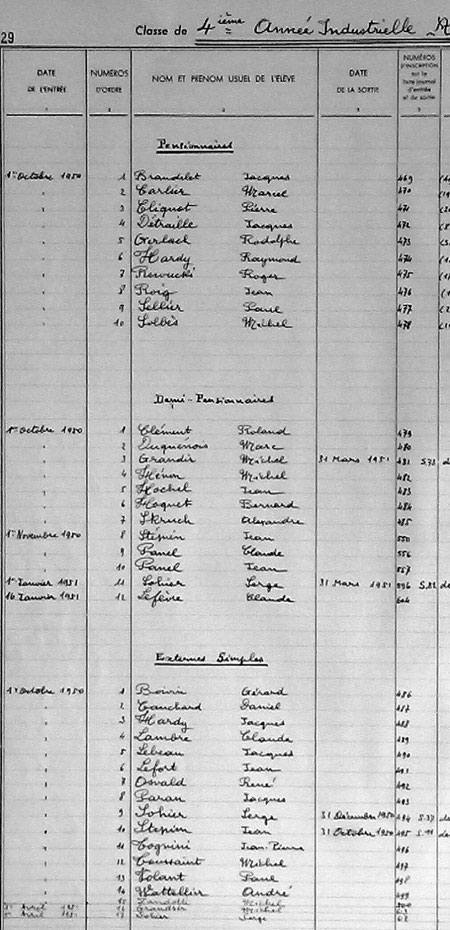 29 Classe de 4ième Année Industrielle A
DATE DE L'ENTRÉE NUMÉROS D'ORDRE NOM ET PRÉNOM USUEL DE L'ÉLÈVE DATE DE LA SORTIE NUMÉROS D'INSCRIPTION sur le livre journal d'entrée et de sortie
1 2 3 4 5
Pensionnaires
1er Octobre 1950 1 Jacques 469
2 Carlier Marcel 470
3 Cliquot Pierre 471
4 Détraille Jacques 472
5 Gerlach Rodolphe 473
6 Hardy Raymond 474
7 Roger 475
8 Roig Jean 476
9 Sellier Paul 477
10 Solbès Michel 478
Demi-Pensionnaires
1er Octobre 1950 1 Clément Roland 479
2 Duquénois Marc 480
3 Grandir Michel 31 Mars 1951 481 S.73 de
4 Hénon Michel 482
5 Hochel Jean 483
6 Hoquet Bernard 484
7 Skruch Alexandre 485
1er Novembre 1950 8 Stépien Jean 550
9 Panel Claude 556
10 Panel Jean 557
1er Janvier 1951 11 Sohier Serge 31 Mars 1951 596 S.82 de
16 Janvier 1951 12 Lefèvre Claude 604
Externes Simples
1er Octobre 1950 1 Boivin Gérard 486
2 Couchard Daniel 487
3 Hardy Jacques 488
4 Lambre Claude 489
5 Lebeau Jacques 490
6 Lefort Jean 491
7 Osvald René 492
8 Paran Jacques 493
9 Sohier Serge 31 Décembre 1950 494 S.37 de
10 Stepien Jean 31 Octobre 1950 495 S.11 de
11 Tognini Jean-Pierre 496
12 Toussaint Michel 497
13 Volant Paul 498
14 Wattellier André 499
15 Michel 500
Avril 1951 16 Grandsir Michel
Avril 1951 17 Sohier Serge